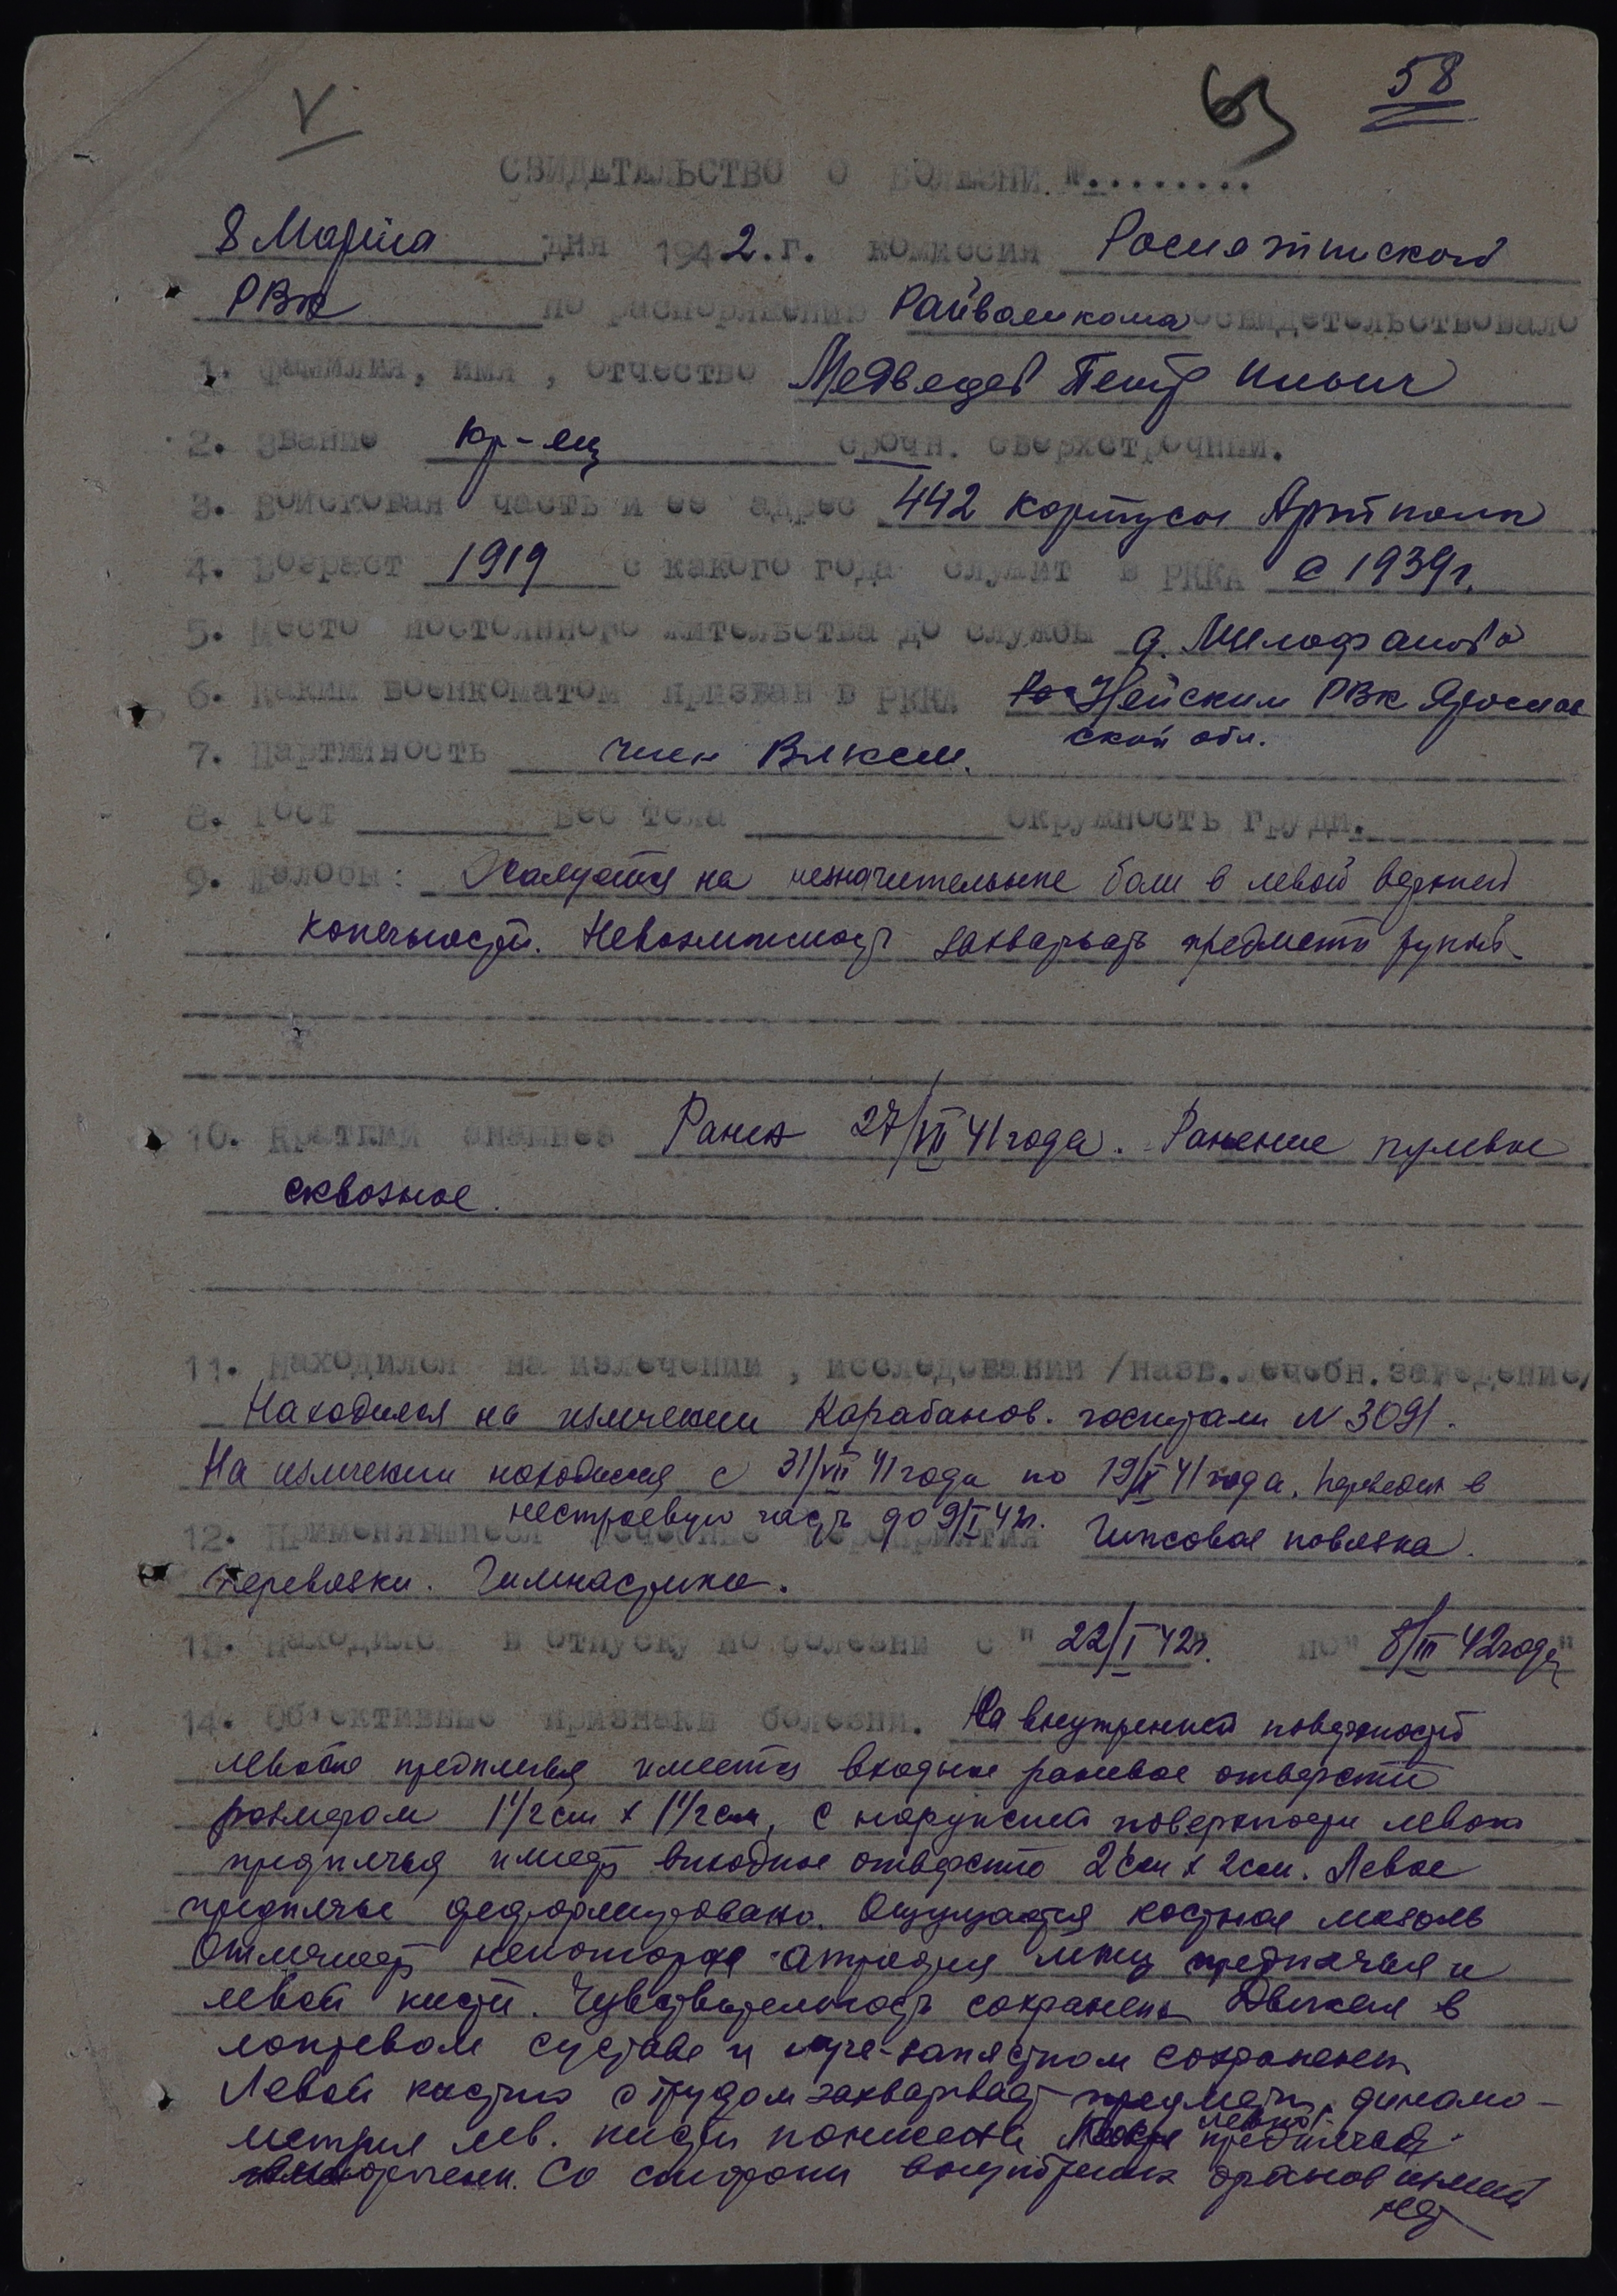 V
63
58
СВИДЕТЕЛЬСТВО О БОЛЕЗНИ №........
8 Марта дня 1942.г. комиссия
РВК по распоряжению Райвоенкома освидетельствовало
1. Фамилия, имя, отчество Медведев Петр Ильич
2. Звание кр-ец срочн. сверхсрочник.
3. Войсковая часть и ее адрес 442 корпусн Артполк
4. Возраст 1919 с какого года служит в РККА с 1939г.
5. Место постоянного жительства до службы д.
6. Каким военкоматом призван в РККА Нейским РВК Ярослав
ской обл.
7. Партийность член ВЛКСМ.
8. Рост вес тела окружность груди.
9. Жалобы: Жалуется на незначительные боли в левой верхней
конечности. Невозможность захватывать предметы рукой
10. Краткий анамнез Ранен 27/VII 41 года. Ранение пулевое
сквозное.
11. Находился на излечении, исследовании /назв.лечебн.заведение/
Находился на излечении Карабанов. госпитали N 3091.
На излечении находился с 31/VII 41 года по 19/X 41 года. переведен в
нестроевую часть до 9/I 42г.
12. Применявшиеся лечебные мероприятия Гипсовая повязка.
перевязки. Гимнастика.
13. Находилс в отпуску по болезни с "22/I 42г." по "8/III 42 года"
14. Об'ективные признаки болезни. На внутренней поверхности
левого предплечья имеется входное раневое отверстие
размером 1 1/2 см х 1 1/2 см, с наружной поверхности левого
предплечья имеет выходное отверстие 2 см х 2 см. Левое
предплечье деформировано. Ощущается костная мозоль
Отмечает некоторая атрофия мышц предплечья и
левой кисти. Чувствительность сохранена Движения в
локтевом суставе и луче-запястном сохранены
Левой кистью с трудом захватывает предметы, динамо-
метрия лев. кисти понижена левого предплечья
Со стороны внутренних органов измен
нет